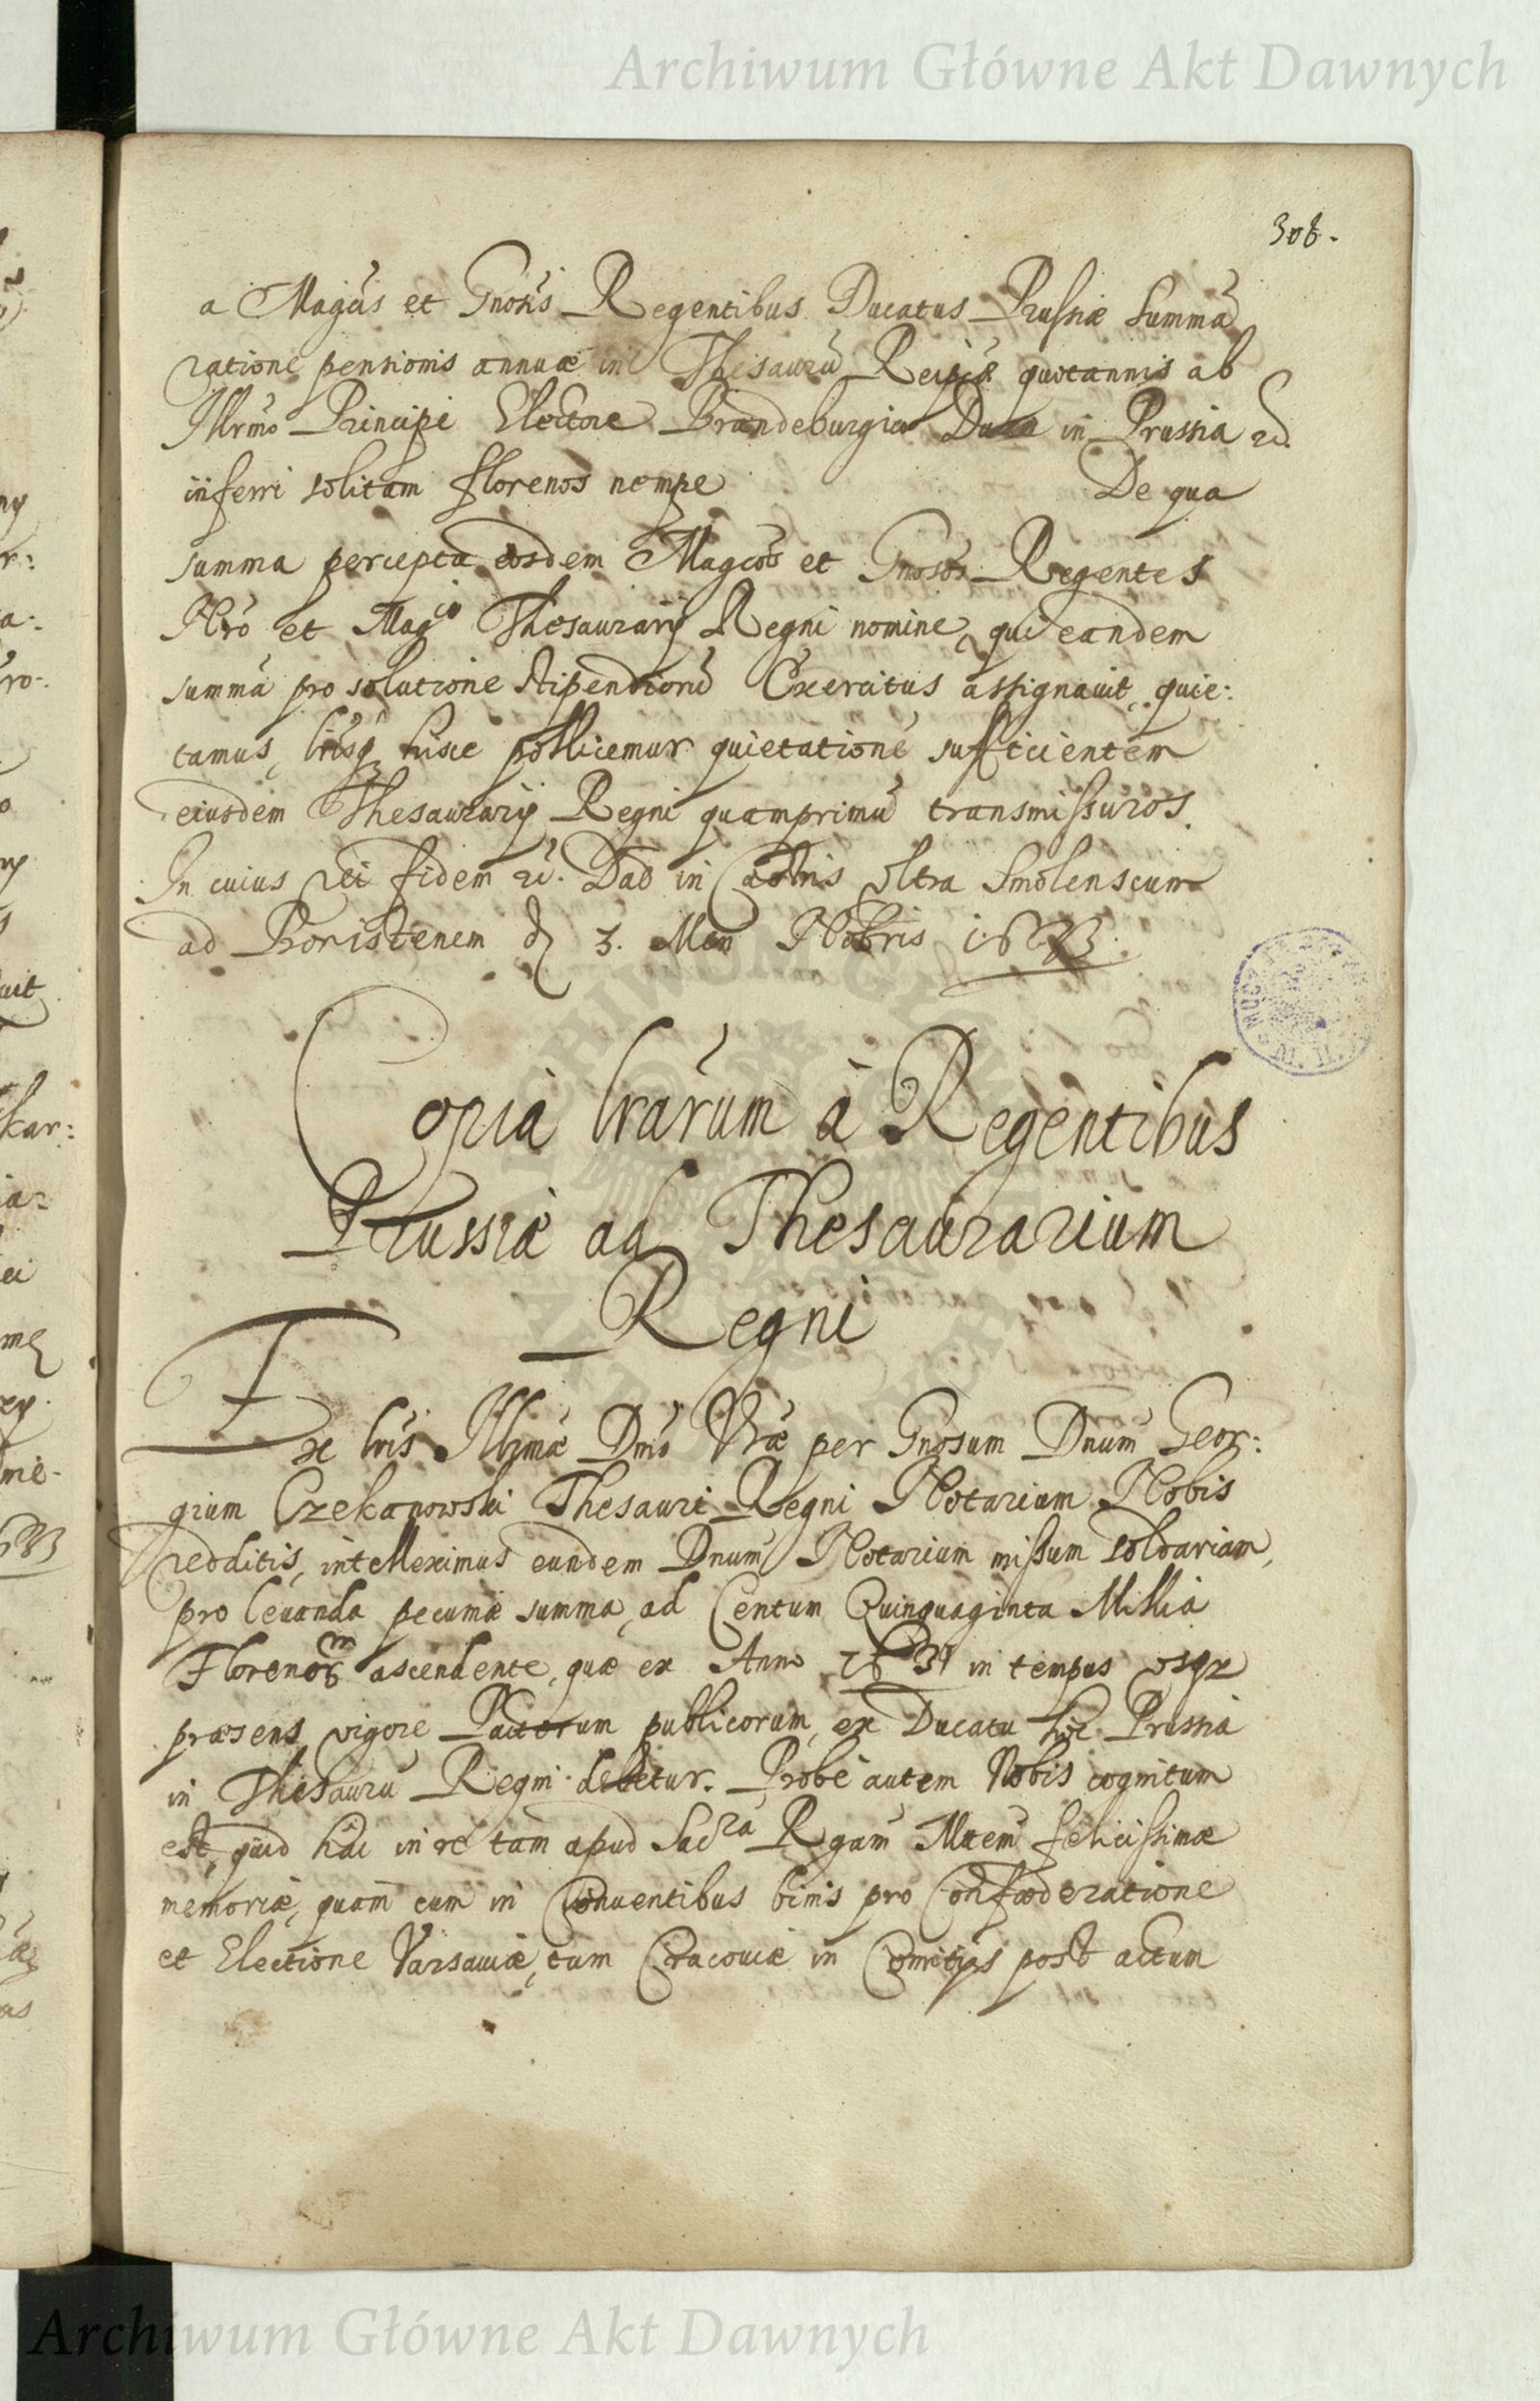 Archiwum Główne Akt Dawnych
308.
a Magcis et Gnosis Regentibus Ducatus Prussiæ Summã
ratione pensionis annuæ in Thesaurũ Reipcæ quotannis ab
Illrmo Principe Electore Brandeburgico Duce in Prussia
inferri solitam florenos nempe De qua
summa percepta eosdem Magcos et Gnosos Regentes
Nro et Magci Thesaurarij Regni nomine, qui eandem
summã pro solutione stipendiorũ Exercitus assignauit, quie:
tamus, lrisq hisce pollicemur quietationẽ sufficientem
eiusdem Thesaurarij Regni quamprimũ transmissuros.
In cuius rei fidem Dat in Castris vltra Smolenscum
ad Boristenem d 3. Men Nobris 1633.
Copia lrarum à Regentibus
Prussiæ ad Thesaurarium
Regni
Ex lris Illrmæ Dnis Vræ per Gnosum Dnum Geor:
gium Czekanowski Thesauri Regni Notarium Nobis
redditis, intelleximus eundem Dnum Notarium missum
pro leuanda pecuniæ summa, ad Centum Quinquaginta Millia
Florenor ascendente, quæ ex Anno 1631 in tempus vsqz
præsens vigore Pactorum publicorum, ex Ducatu hoc Prussiæ
in Thesaurũ Regni debetur. Probè autem Nobis cognitum
est, quid hac in re tam apud Sacra Rgam Mtem felicissimæ
memoriæ, quam cum in Conuentibus binis pro Confœderatione
et Electione Varsauiæ, tum Cracouiæ in Comitijs post actum
Archiwum Główne Akt Dawnych